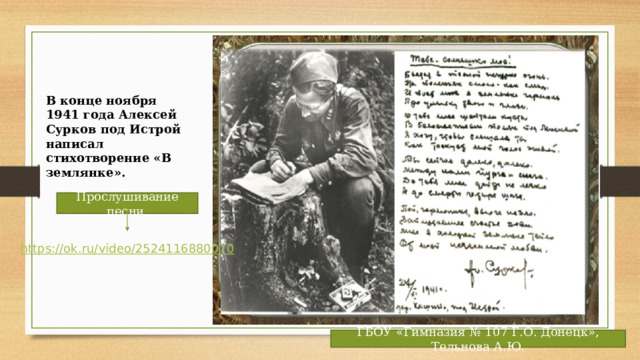 В конце ноября
1941 года Алексей
Сурков под Истрой
написал
стихотворение «В
землянке».
Прослушивание
песни
https://ok.ru/video/2524116880070
Тебе - солнышко моё!
Бьется в тесной печурке огонь.
На поленьях смола - как слеза.
И поет мне в землянке гармонь
Про улыбку твою и глаза.
О тебе мне шептали кусты
В белоснежных полях под Москвой
Я хочу, чтобы слышала ты
Как тоскует мой голос живой.
Мы сейчас далеко, далеко.
Между нами пурга и снега.
До тебя мне дойти не легко
А до смерти четыре шага.
Пой, гармоника, вьюге назло.
Заплутавшее счастье зови.
Мне в холодной землянке тепло
От моей негасимой любви.
1941 г.
под Истрой.
ГБОУ «Гимназия № 107 Г.О. Донецк»,
Тельнова А.Ю.